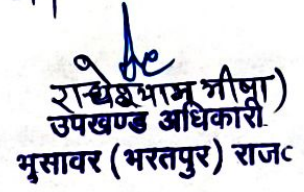 राधेश्याम मीणा)
उपखण्ड अधिकारी
भुसावर (भरतपुर) राज०